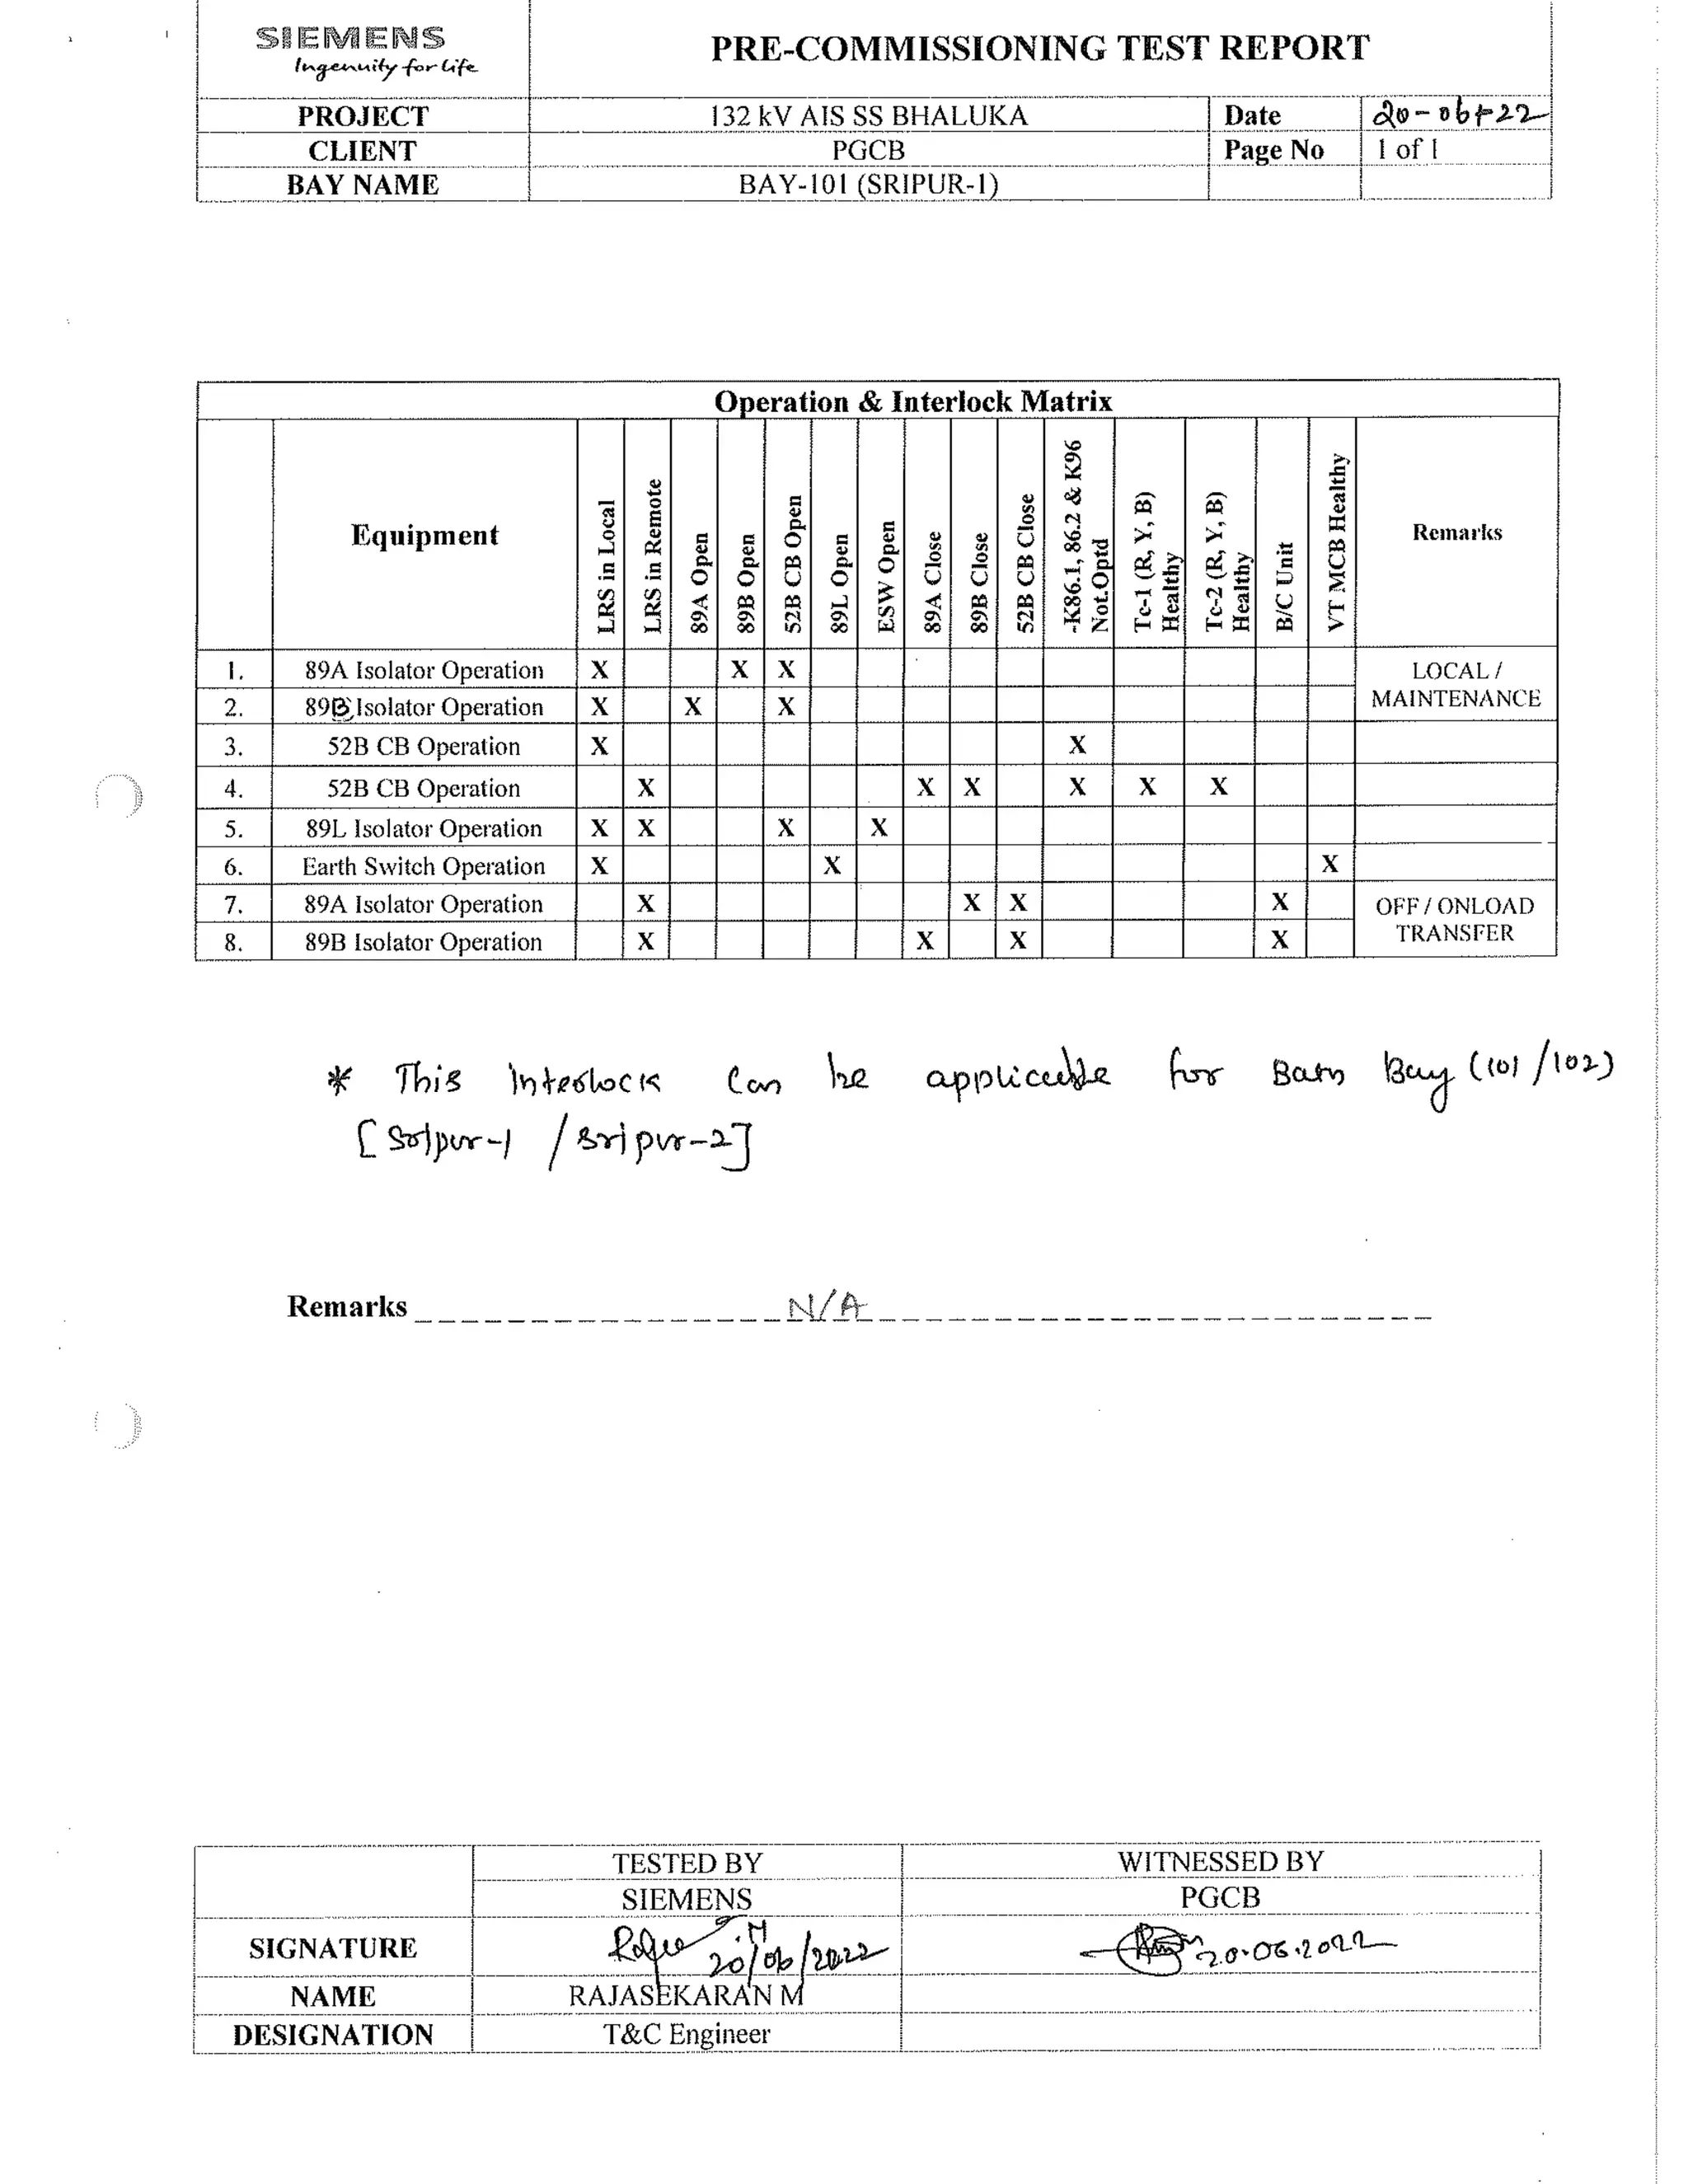 SIEMENS
Ingenuity for life
PRE-COMMISSIONING TEST REPORT
PROJECT 132 kV AIS SS BHALUKA Date 20-06-22
CLIENT PGCB Page No 1 of 1
BAY NAME BAY-101 (SRIPUR-1)
Operation & Interlock Matrix
Equipment
LRS in Local
LRS in Remote
89A Open
89B Open
52B CB Open
89L Open
ESW Open
89A Close
89B Close
52B CB Close
-K86.1, 86.2 & K96
Not.Optd
Tc-1 (R, Y, B)
Healthy
Tc-2 (R, Y, B)
Healthy
B/C Unit
VT MCB Healthy
Remarks
1. 89A Isolator Operation X X X
LOCAL /
MAINTENANCE
2. 89B Isolator Operation X X X
3. 52B CB Operation X X
4. 52B CB Operation X X X X X X
5. 89L Isolator Operation X X X X
6. Earth Switch Operation X X X
7. 89A Isolator Operation X X X X
OFF / ONLOAD
TRANSFER
8. 89B Isolator Operation X X X X
* This Interlock Can be applicable for Bay (101 /102)
[Sripur-1 / Sripur-2]
Remarks N/A
TESTED BY WITNESSED BY
SIEMENS PGCB
SIGNATURE 20/06/2022 20.06.2022
NAME RAJASEKARAN M
DESIGNATION T&C Engineer